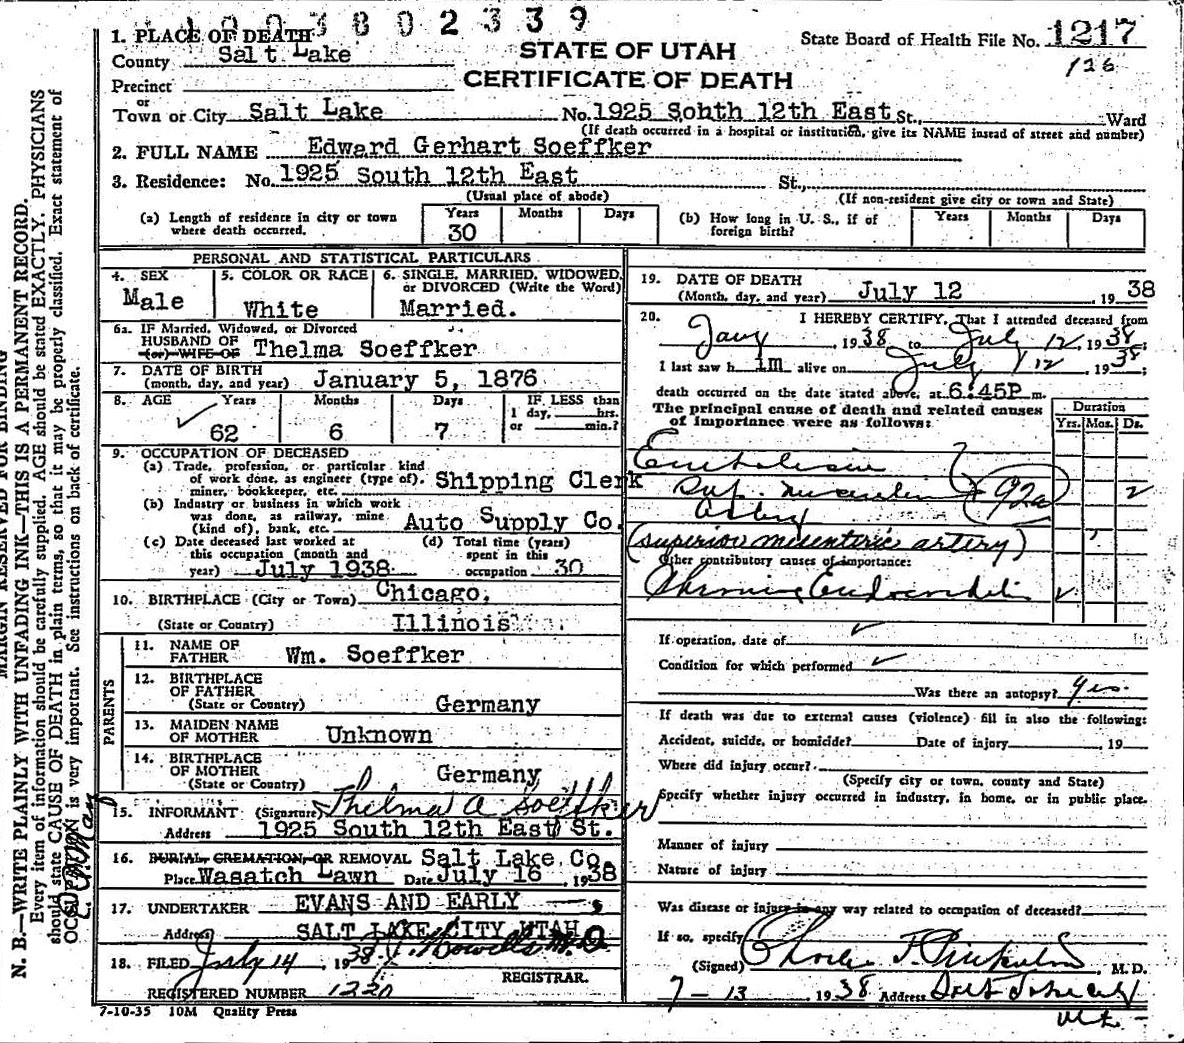 1003802339
1. PLACE OF DEATH
County Salt Lake
STATE OF UTAH
CERTIFICATE OF DEATH
State Board of Health File No. 1217
126
Precinct
or
Town or City Salt Lake No. 1925 Sohth 12th East St., Ward
(If death occurred in a hospital or institution, give its NAME instead of street and number)
2. FULL NAME Edward Gerhart Soeffker
3. Residence: No. 1925 South 12th East St.,
(Usual place of abode) (If non-resident give city or town and State)
(a) Length of residence in city or town where death occurred. Years 30 Months Days
(b) How long in U. S., if of foreign birth? Years Months Days
PERSONAL AND STATISTICAL PARTICULARS
4. SEX Male
5. COLOR OR RACE White
6. SINGLE, MARRIED, WIDOWED, or DIVORCED (Write the Word) Married.
6a. IF Married, Widowed, or Divorced
HUSBAND OF
(or) WIFE OF Thelma Soeffker
7. DATE OF BIRTH
(month, day, and year) January 5, 1876
8. AGE Years 62 Months 6 Days 7 IF LESS than 1 day, hrs. or min.?
9. OCCUPATION OF DECEASED
(a) Trade, profession, or particular kind
of work done, as engineer (type of),
miner, bookkeeper, etc. Shipping Clerk
(b) Industry or business in which work
was done, as railway, mine
(kind of), bank, etc. Auto Supply Co.
(c) Date deceased last worked at
this occupation (month and
year) July 1938
(d) Total time (years)
spent in this
occupation 30
10. BIRTHPLACE (City or Town) Chicago,
(State or Country) Illinois
PARENTS
11. NAME OF
FATHER Wm. Soeffker
12. BIRTHPLACE
OF FATHER
(State or Country) Germany
13. MAIDEN NAME
OF MOTHER Unknown
14. BIRTHPLACE
OF MOTHER
(State or Country) Germany
15. INFORMANT (Signature) Thelma A Soeffker
Address 1925 South 12th East St.
16. BURIAL, CREMATION, OR REMOVAL Salt Lake Co.
Place Wasatch Lawn Date July 16, 1938
17. UNDERTAKER EVANS AND EARLY
Address SALT LAKE CITY UTAH
18. FILED July 14, 1938 Howells M.D.
REGISTRAR.
REGISTERED NUMBER 1220
7-10-35 10M Quality Press
19. DATE OF DEATH
(Month, day, and year) July 12, 1938
20. I HEREBY CERTIFY, That I attended deceased from
Jany, 1938 to July 12, 1938;
I last saw h im alive on July 12, 1938;
death occurred on the date stated above, at 6:45P m.
The principal cause of death and related causes
of importance were as follows:
Duration
Yrs. Mos. Ds.
Embolism
Sup. 92a 2
(superior mesenteric artery)
Other contributory causes of importance:
Chronic Endocarditis
If operation, date of
Condition for which performed
Was there an autopsy? Yes.
If death was due to external causes (violence) fill in also the following:
Accident, suicide, or homicide? Date of injury, 19
Where did injury occur?
(Specify city or town, county and State)
Specify whether injury occurred in industry, in home, or in public place.
Manner of injury
Nature of injury
Was disease or injury in any way related to occupation of deceased?
If so, specify
(Signed) M. D.
7-13 1938 Address
MARGIN RESERVED FOR BINDING
N. B.—WRITE PLAINLY WITH UNFADING INK—THIS IS A PERMANENT RECORD.
Every item of information should be carefully supplied. AGE should be stated EXACTLY. PHYSICIANS
should state CAUSE OF DEATH in plain terms, so that it may be properly classified. Exact statement of
OCCUPATION is very important. See instructions on back of certificate.